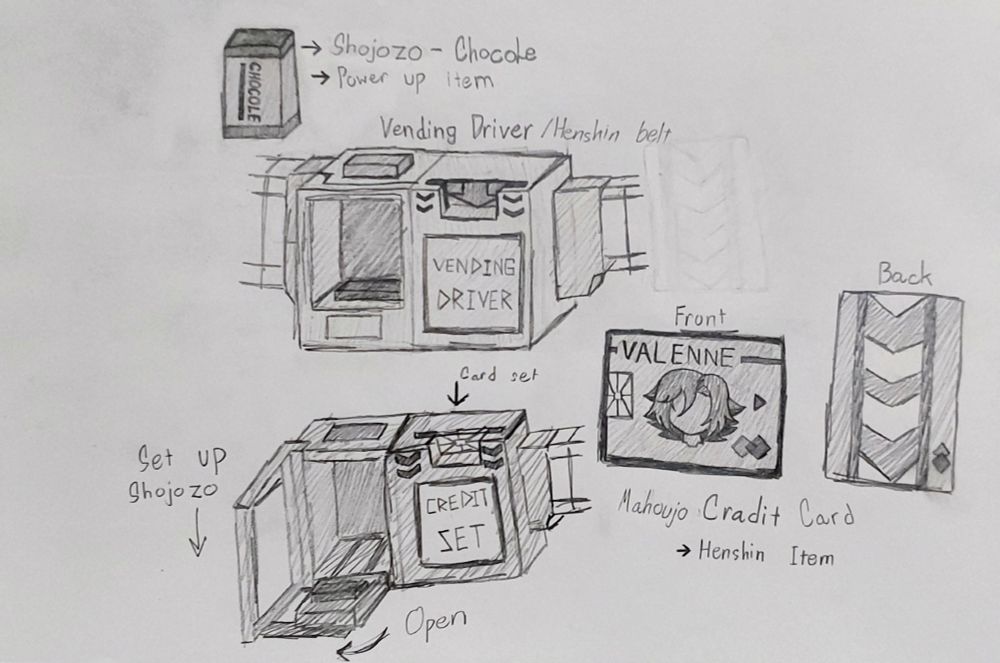 → Shojozo - Chocole
→ Power up item
CHOCOLE
Vending Driver / Henshin belt
VENDING
DRIVER
Back
Front
VALENNE
Card set
Set up
Shojozo
CREDIT
SET
Mahoujo Cradit Card
→ Henshin Item
Open